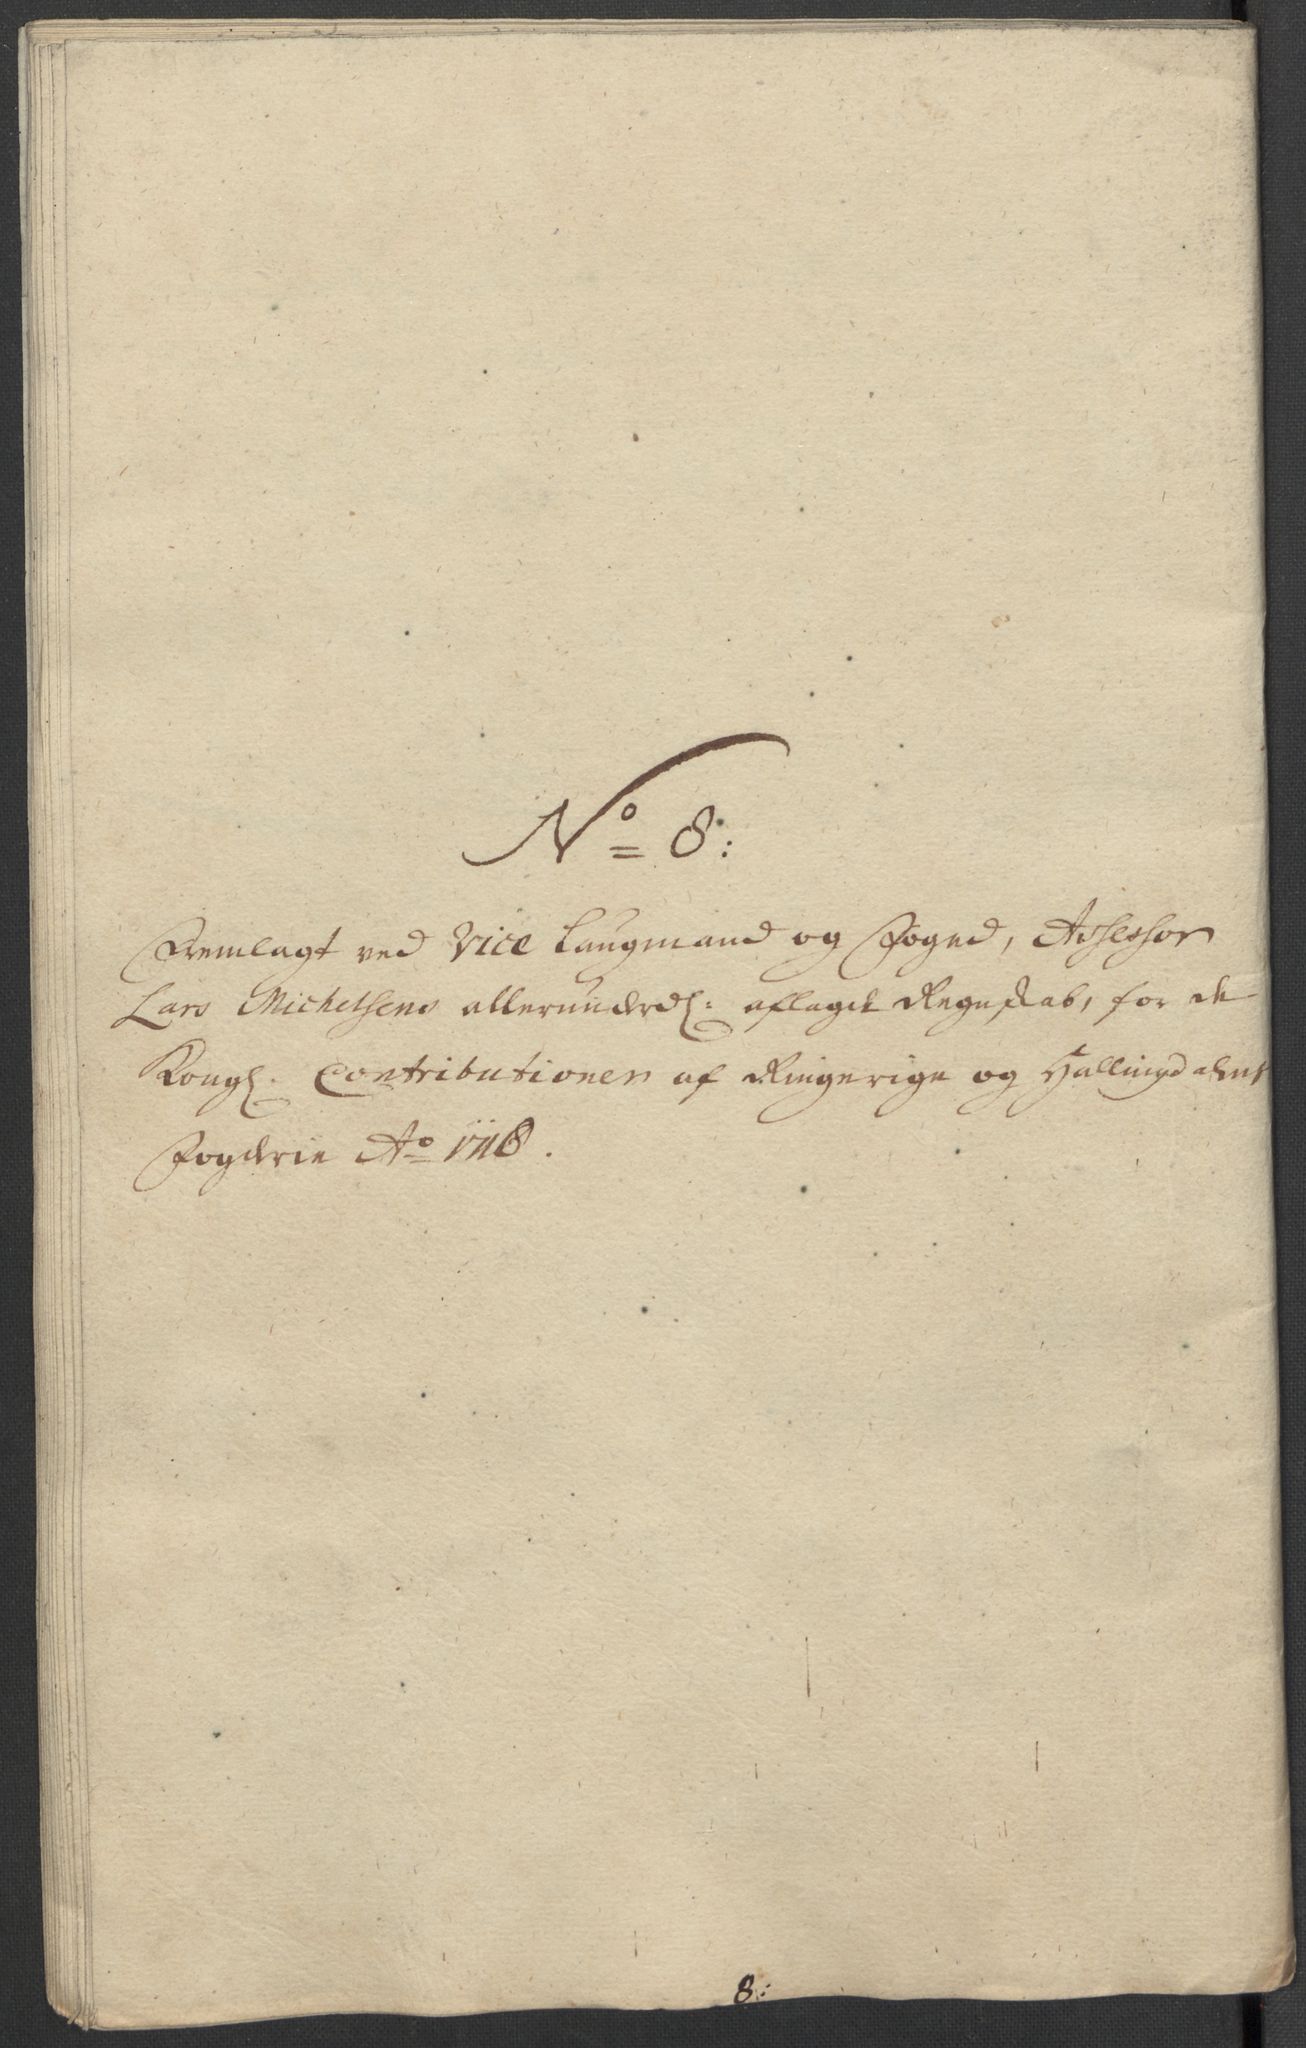 No 8:
Fremlagt ved Vice Laugmand og Foged, Assessor
Lars Michelsens allerunderd: aflagde Regnskab, for de
Kongl. Contributioner af Ringerige og Hallingdahls
Fogderie Ao 1718.
8: